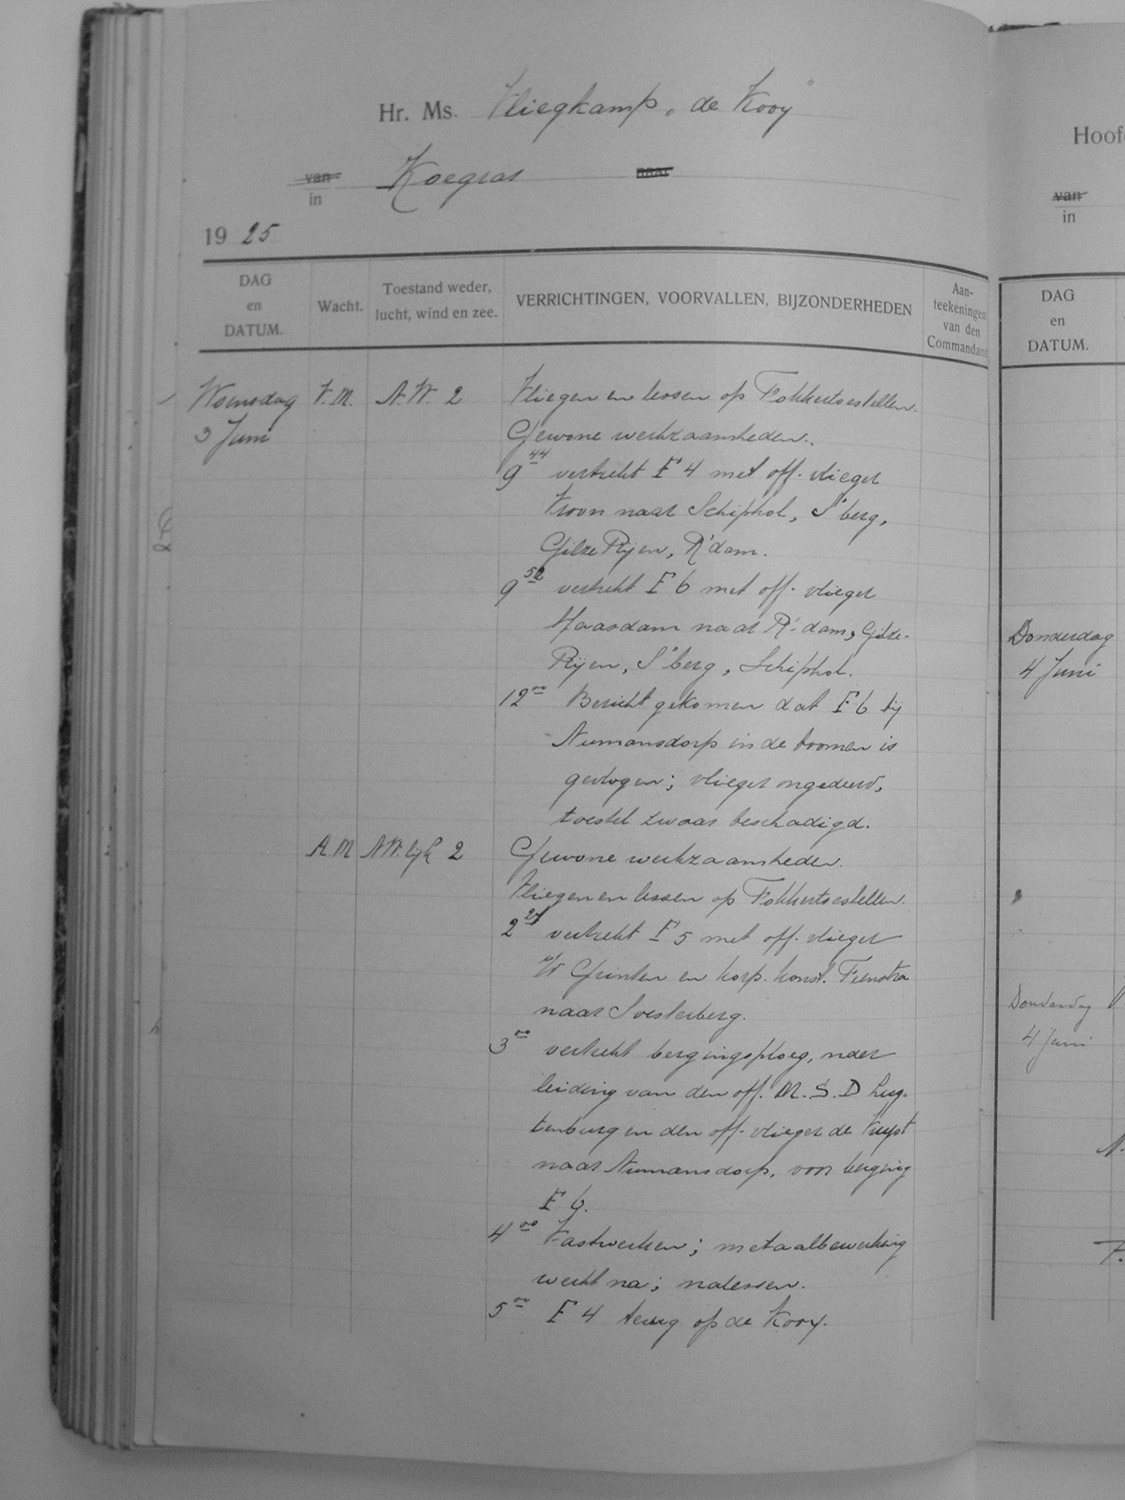 Hr. Ms. Vliegkamp „de Kooy"
van
in
Koegras
naar
19 25
DAG en DATUM.
Wacht.
Toestand weder, lucht, wind en zee.
VERRICHTINGEN, VOORVALLEN, BIJZONDERHEDEN
Aan-teekeningen van den Commandant
Woensdag V.M. N.W. 2 Vliegen en lessen op Fokkertoestellen.
3 Juni Gewone werkzaamheden.
9 44 vertrekt F 4 met off. vlieger
Kroon naar Schiphol, S'berg,
Gilze Rijen, R'dam.
9 52 vertrekt F 6 met off. vlieger
Haasdam naar R'dam, Gilze-
Rijen, S'berg, Schiphol.
12 00 Bericht gekomen dat F 6 bij
Numansdorp in de boomen is
gevlogen; vlieger ongedeerd,
toestel zwaar beschadigd.
A.M. 2 Gewone werkzaamheden.
Vliegen en lessen op Fokkertoestellen.
2 27 vertrekt F 5 met off. vlieger
en korp. konst. Feenstra
naar Soesterberg.
3 00 vertrekt bergingsploeg, onder
leiding van den off. M.S.D Lug-
tenburg en den off. vlieger de
naar Numansdorp, voor berging
F 6.
4 00 Vastwerken; metaalbewerking
werkt na; nalessen.
5 00 F 4 terug op de Kooy.
Hoof
van
in
DAG en DATUM.
Donderdag
4 Juni
Donderdag
4 Juni